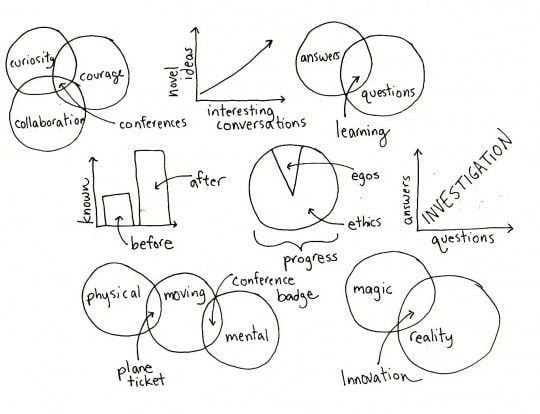 curiosity
courage
collaboration
conferences
novel
ideas
interesting
conversations
answers
questions
learning
known
before
after
egos
ethics
progress
answers
INVESTIGATION
questions
physical
moving
mental
plane
ticket
conference
badge
magic
reality
Innovation